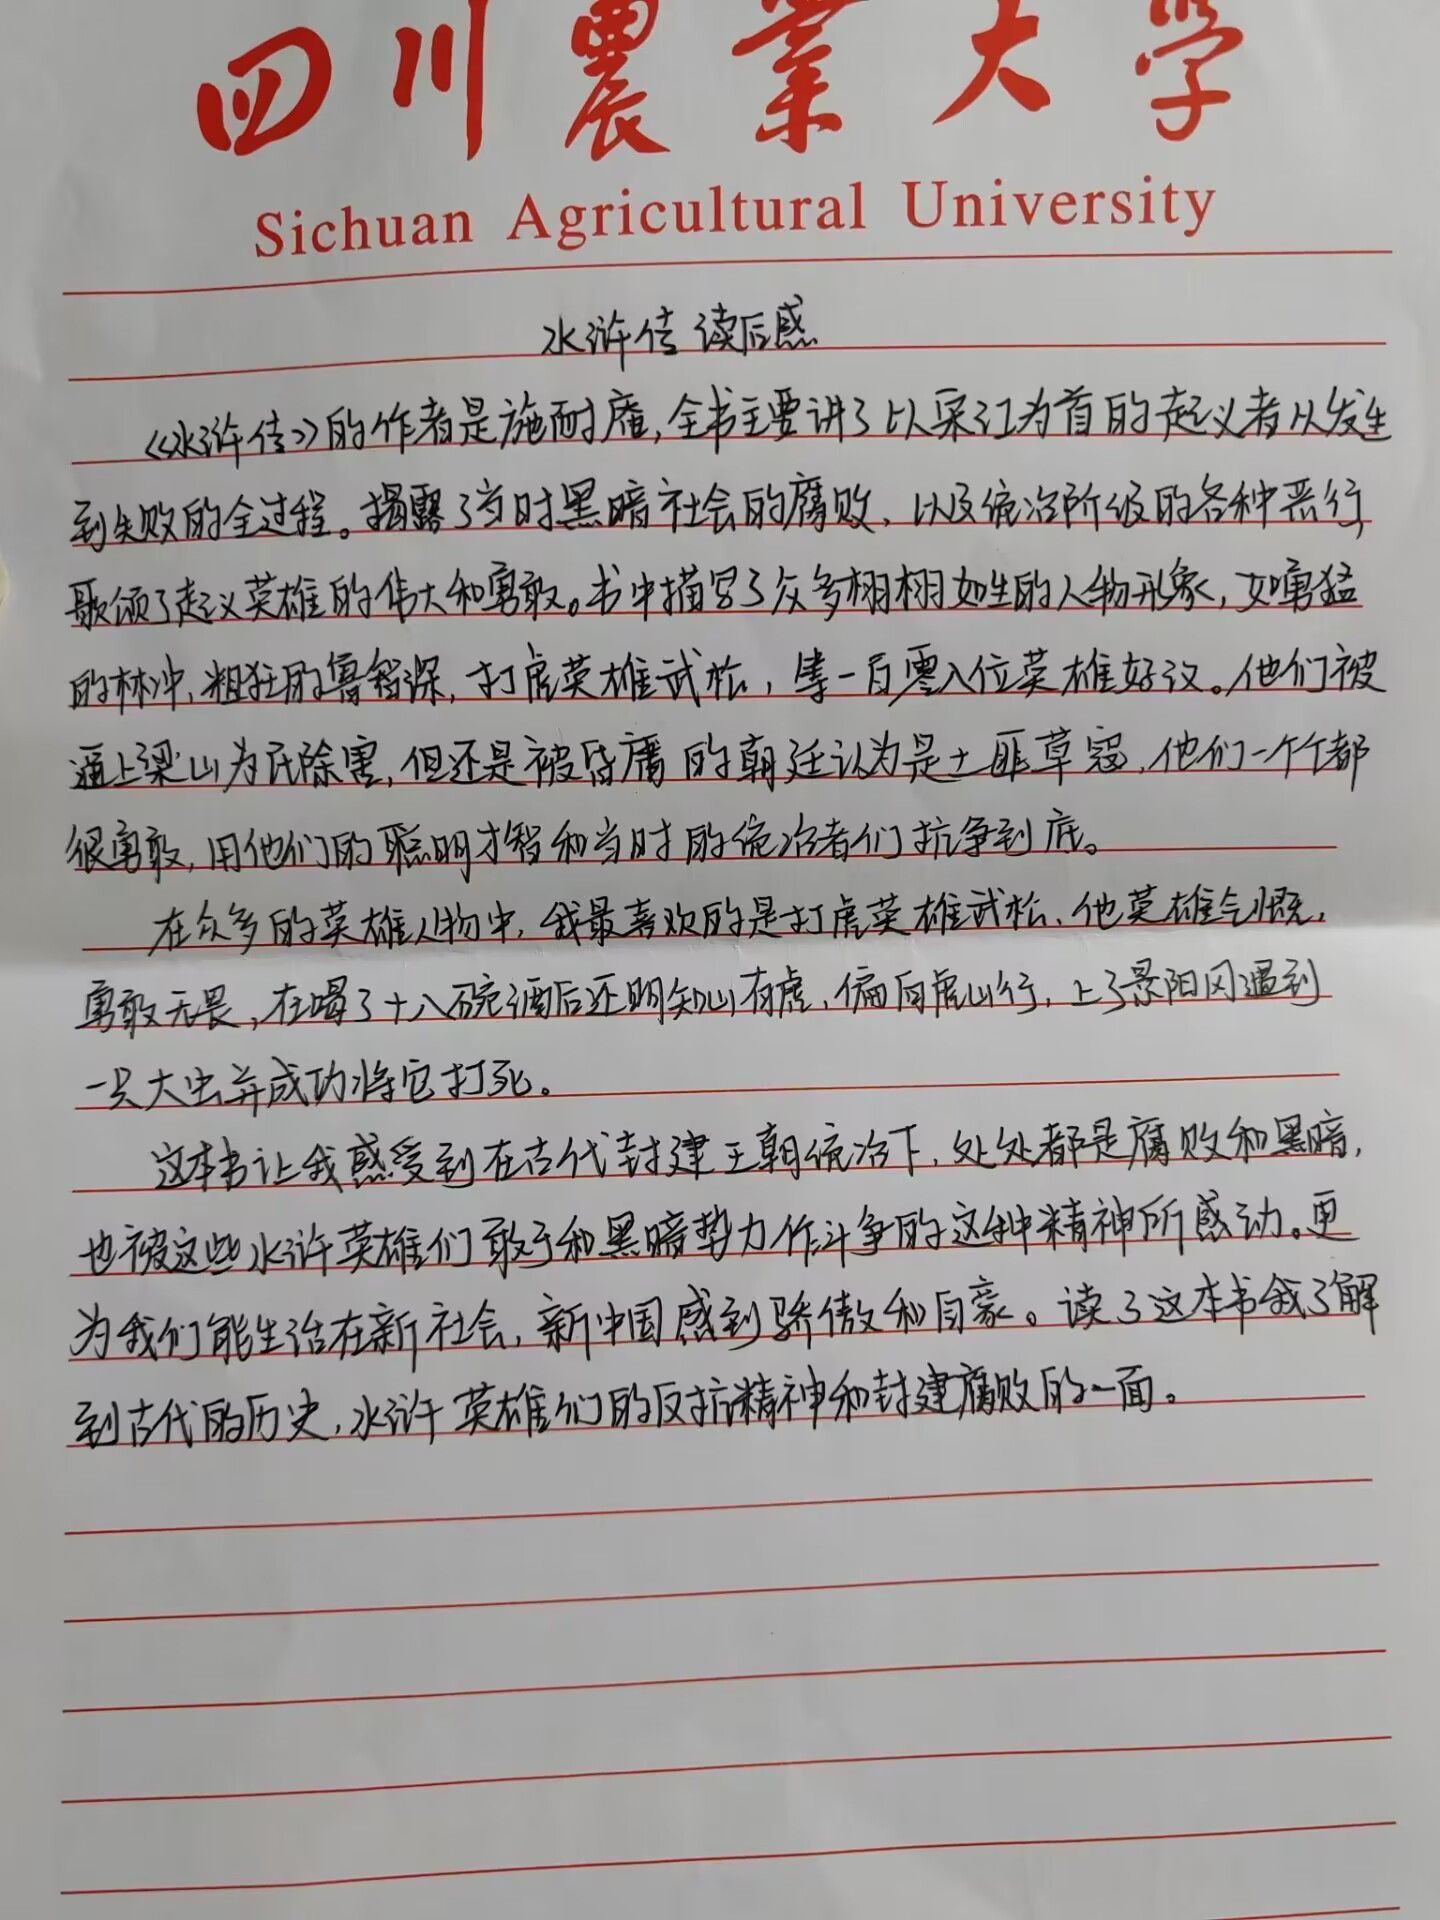 四川農業大学
Sichuan Agricultural University
水浒传 读后感
《水浒传》的作者是施耐庵,全书主要讲了以宋江为首的起义者从发生
到失败的全过程。揭露了当时黑暗社会的腐败,以及统治阶级的各种恶行,
歌颂了起义英雄的伟大和勇敢。书中描写了众多栩栩如生的人物形象,如勇猛
的林冲,粗狂的鲁智深,打虎英雄武松,等一百零八位英雄好汉。他们被
逼上梁山为民除害,但还是被昏庸的朝廷认为是土匪草寇,他们一个个都
很勇敢,用他们的聪明才智和当时的统治者们抗争到底。
在众多的英雄人物中,我最喜欢的是打虎英雄武松,他英雄气慨,
勇敢无畏,在喝了十八碗酒后还明知山有虎,偏向虎山行,上了景阳冈遇到
一只大虫并成功将它打死。
这本书让我感受到在古代封建王朝统治下,处处都是腐败和黑暗,
也被这些水浒英雄们敢于和黑暗势力作斗争的这种精神所感动。更
为我们能生活在新社会,新中国感到骄傲和自豪。读了这本书我了解
到古代的历史,水浒英雄们的反抗精神和封建腐败的一面。